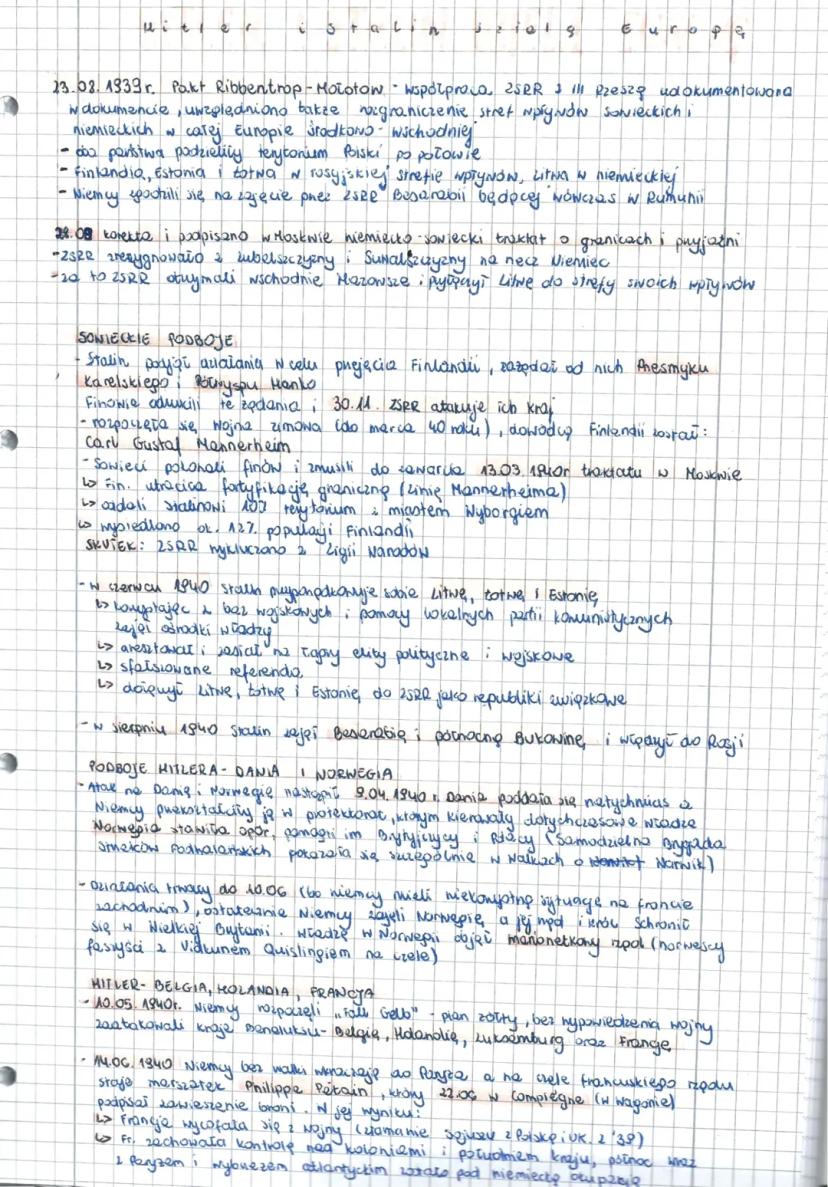 Hitler i Stalin dzielą Europę
23.08.1939r. Pakt Ribbentrop-Mołotow - współpraca ZSRR z III Rzeszą udokumentowana
w dokumencie, uwzględniono także rozgraniczenie stref wpływów sowieckich i
niemieckich w całej Europie Środkowo-Wschodniej
- oba państwa podzieliły terytorium Polski po połowie
- Finlandia, Estonia i Łotwa w rosyjskiej strefie wpływów, Litwa w niemieckiej
- Niemcy zgodzili się na zajęcie przez ZSRR Besarabii będącej wówczas w Rumunii
28.09 korekta i podpisano w Moskwie niemiecko-sowiecki traktat o granicach i przyjaźni
- ZSRR zrezygnowało z Lubelszczyzny i Suwalszczyzny na rzecz Niemiec
- za to ZSRR otrzymali wschodnie Mazowsze i przyłączył Litwę do strefy swoich wpływów
SOWIECKIE PODBOJE
- Stalin podjął działania w celu przejęcia Finlandii, zażądał od nich Przesmyku
Karelskiego i Półwyspu Hanko
Finowie odrzucili te żądania i 30.11. ZSRR atakuje ich kraj
- rozpoczęła się wojna zimowa (do marca 40 roku), dowódcą Finlandii został:
Carl Gustaf Mannerheim
- Sowieci pokonali finów i zmusili do zawarcia 13.03.1940r traktatu w Moskwie
↳ Fin. utraciła fortyfikację graniczną (Linię Mannerheima)
↳ oddali Stalinowi 10% terytorium z miastem Wyborgiem
↳ wysiedlono ok. 12% populacji Finlandii
SKUTEK: ZSRR wykluczono z Ligii Narodów
- w czerwcu 1940 Stalin przyporządkowuje sobie Litwę, Łotwę i Estonię
↳ korzystając z baz wojskowych i pomocy lokalnych partii komunistycznych
zajął ośrodki władzy
↳ aresztował i zesłał na łagry elity polityczne i wojskowe
↳ sfałszowane referenda
↳ dołączył Litwę, Łotwę i Estonię do ZSRR jako republiki związkowe
- w sierpniu 1940 Stalin zajął Besarabię i północną Bukowinę i włączył do Rosji
PODBOJE HITLERA - DANIA I NORWEGIA
- Atak na Danię i Norwegię nastąpił 9.04.1940 r. Dania poddała się natychmias a
Niemcy przekształciły ją w protektorat, którym kierowały dotychczasowe władze
Norwegia stawiła opór, pomogli im Brytyjczycy i Polacy (Samodzielna Brygada
Strzelców Podhalańskich pokazała się szczególnie w walkach o Narwik)
- Działania trwały do 10.06 (bo niemcy mieli niekorzystną sytuację na froncie
zachodnim), ostatecznie Niemcy zajęli Norwegię, a jej rząd i król schronił
się w Wielkiej Brytanii. Władzę w Norwegii objął marionetkowy rząd (norwescy
faszyści z Vidkunem Quislingiem na czele)
HITLER - BELGIA, HOLANDIA, FRANCJA
- 10.05.1940r. Niemcy rozpoczęli „Fall Gelb" - plan żółty, bez wypowiedzenia wojny
zaatakowali kraje Beneluksu - Belgię, Holandię, Luksemburg oraz Francję
- 14.06.1940 Niemcy bez walki wkraczają do Paryża a na czele francuskiego rządu
staje marszałek Philippe Pétain, który 22.06 w Compiègne (w wagonie)
podpisał zawieszenie broni. W jej wyniku:
↳ Francja wycofała się z wojny (złamanie sojuszu z Polską i UK. z '39)
↳ Fr. zachowała kontrolę nad koloniami i południem kraju, północ wraz
z Paryżem i wybrzeżem atlantyckim została pod niemiecką okupacją